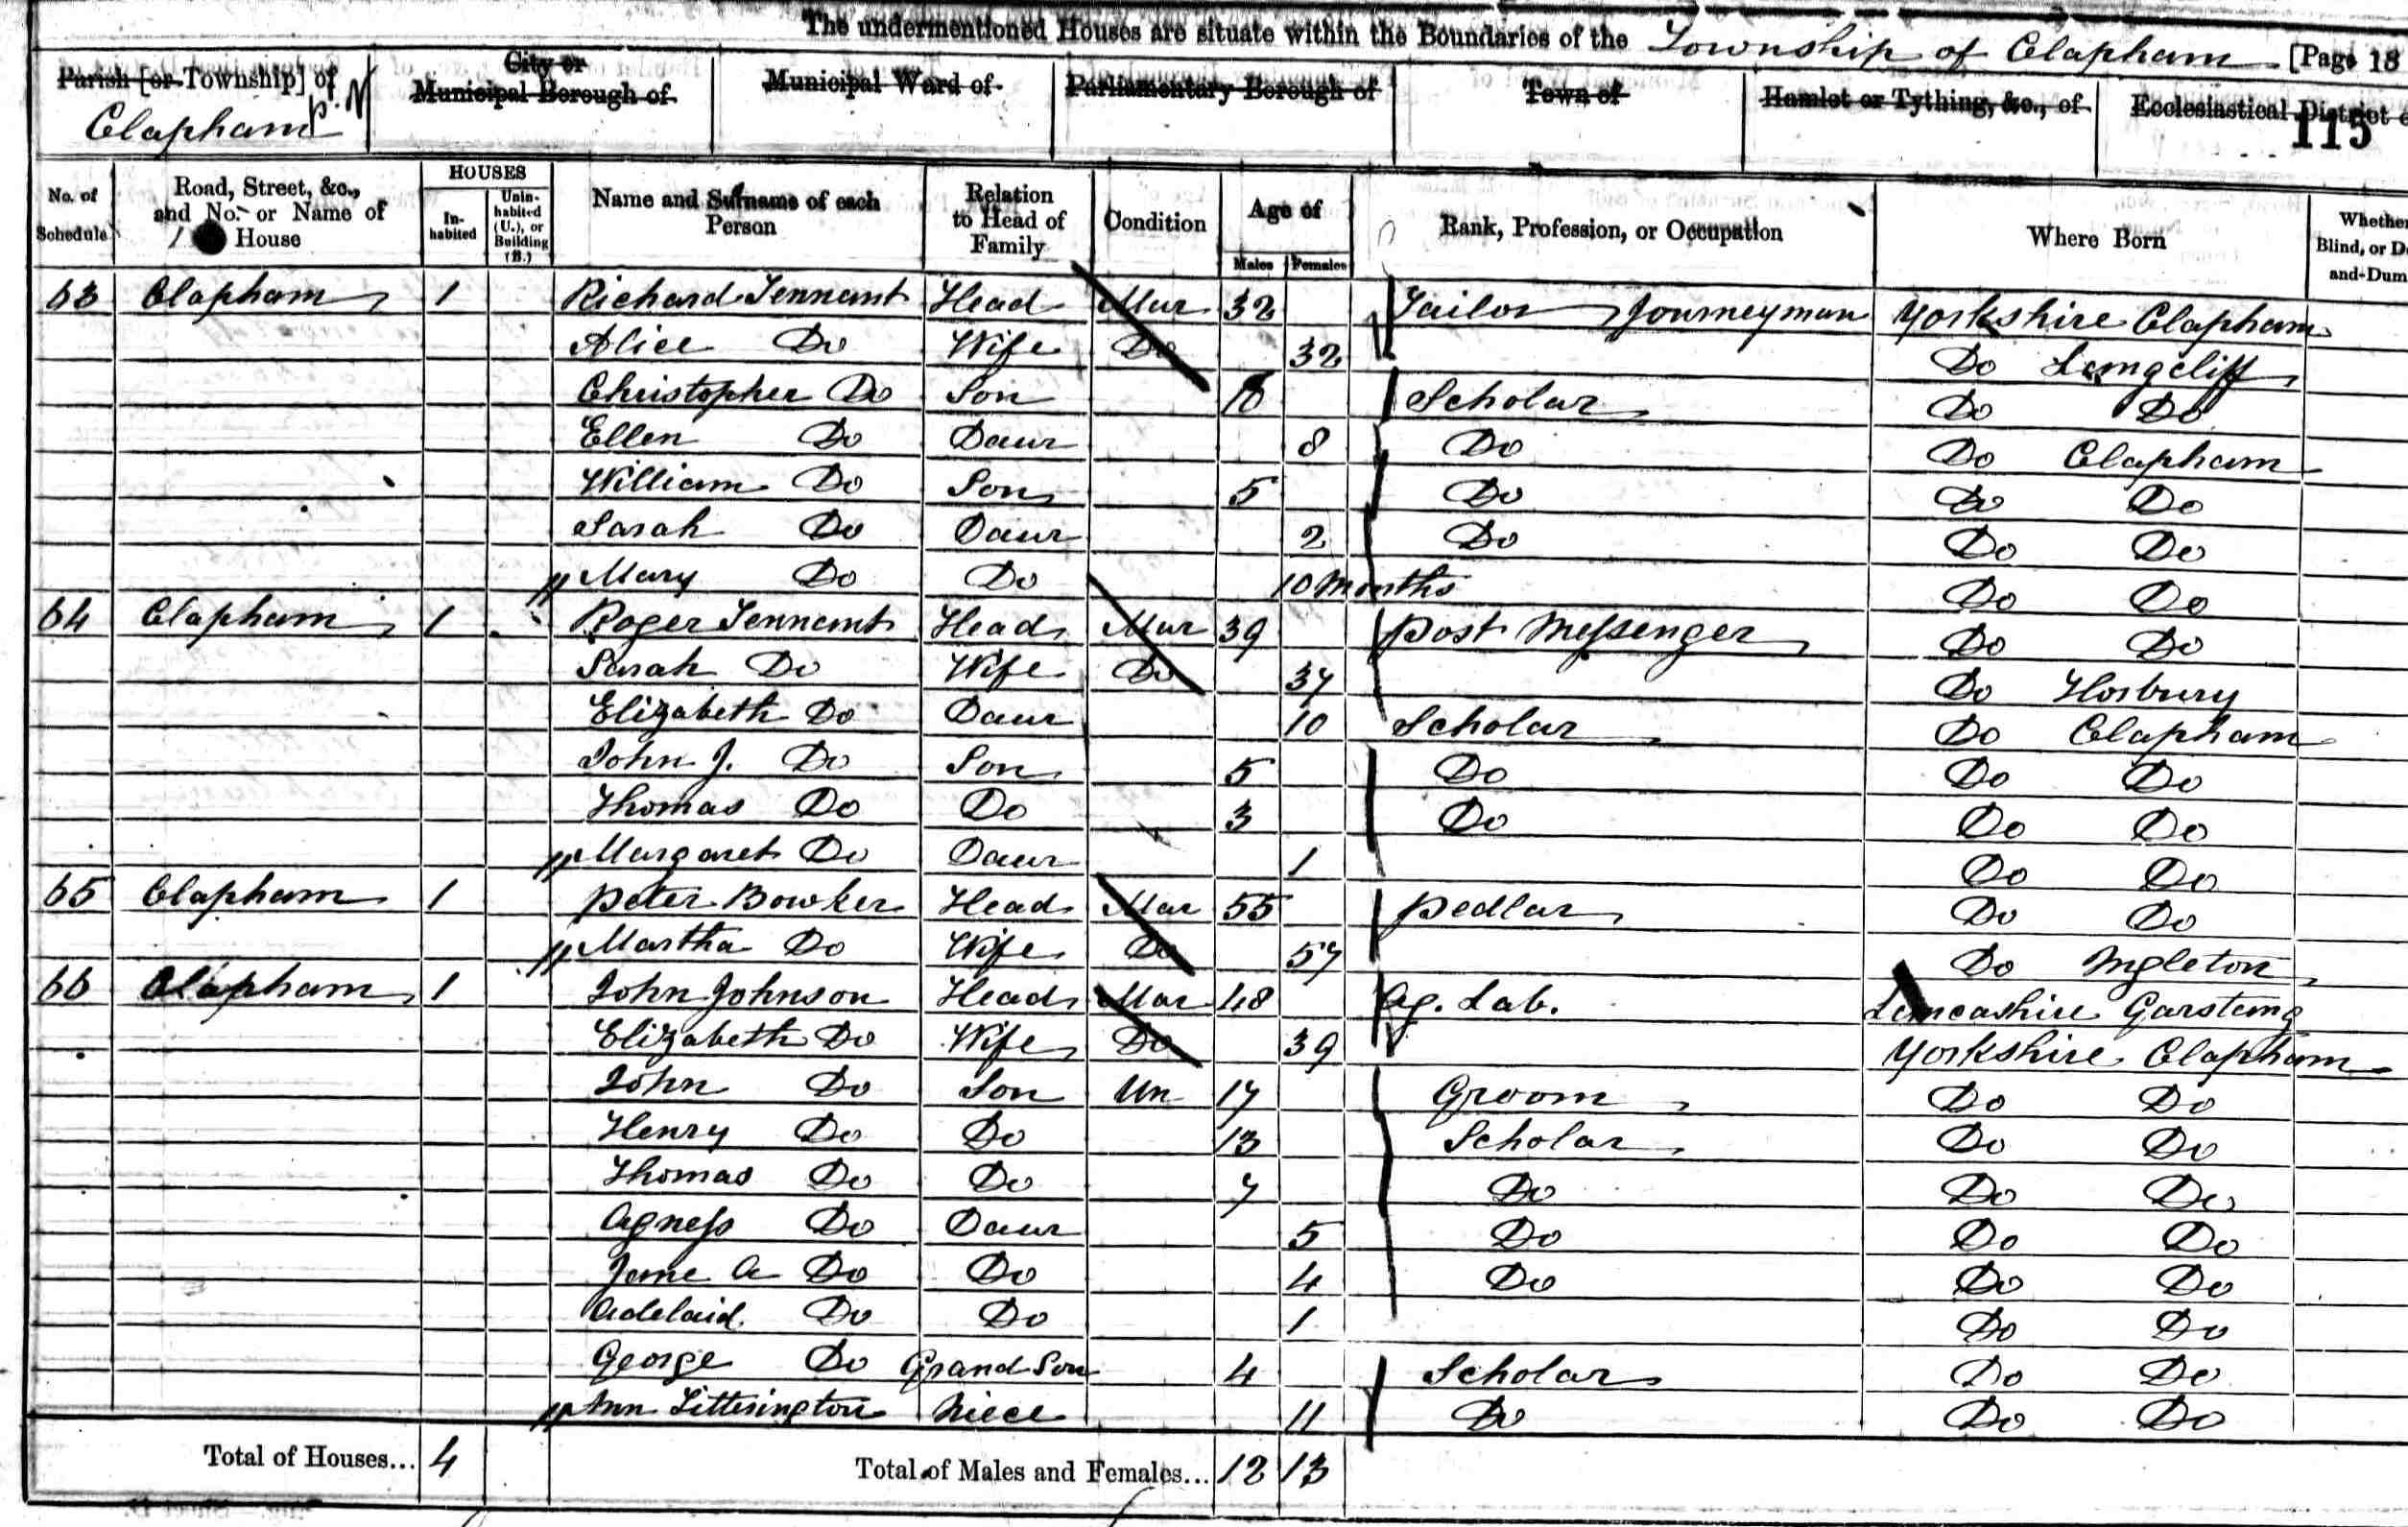 The undermentioned Houses are situate within the Boundaries of the Township of Clapham [Page 18
Parish [or Township] of Clapham P. N City or Municipal Borough of Municipal Ward of Parliamentary Borough of Town of Hamlet or Tything, &c., of Ecclesiastical District
115
No. of Schedule Road, Street, &c., and No. or Name of House HOUSES Inhabited Uninhabited (U.), or Building (B.) Name and Surname of each Person Relation to Head of Family Condition Age of Males Females Rank, Profession, or Occupation Where Born Whether Blind, or D and-Dum
63 Clapham 1 Richard Tennant Head Mar 32 Tailor Journeyman Yorkshire Clapham
Alice Do Wife Do 32 Do Langcliff
Christopher Do Son Scholar Do Do
Ellen Do Daur 8 Do Do Clapham
William Do Son 5 Do Do Do
Sarah Do Daur 2 Do Do Do
Mary Do Do 10 Months Do Do
64 Clapham 1 Roger Tennant Head Mar 39 Post Messenger Do Do
Sarah Do Wife Do 37 Do Horbury
Elizabeth Do Daur 10 Scholar Do Clapham
John J. Do Son 5 Do Do Do
Thomas Do Do 3 Do Do Do
Margaret Do Daur 1 Do Do
65 Clapham 1 Peter Bowker Head Mar 55 Pedlar Do Do
Martha Do Wife Do 57 Do Ingleton
66 Clapham 1 John Johnson Head Mar 48 Ag. Lab. Lancashire Garstang
Elizabeth Do Wife Do 39 Yorkshire Clapham
John Do Son Un 17 Groom Do Do
Henry Do Do 13 Scholar Do Do
Thomas Do Do 7 Do Do Do
Agness Do Daur 5 Do Do Do
Jane A Do Do 4 Do Do Do
Adelaid. Do Do 1 Do Do
George Do Grand Son 4 Scholar Do Do
Ann Litterington Niece 11 Do Do Do
Total of Houses... 4 Total of Males and Females... 12 13